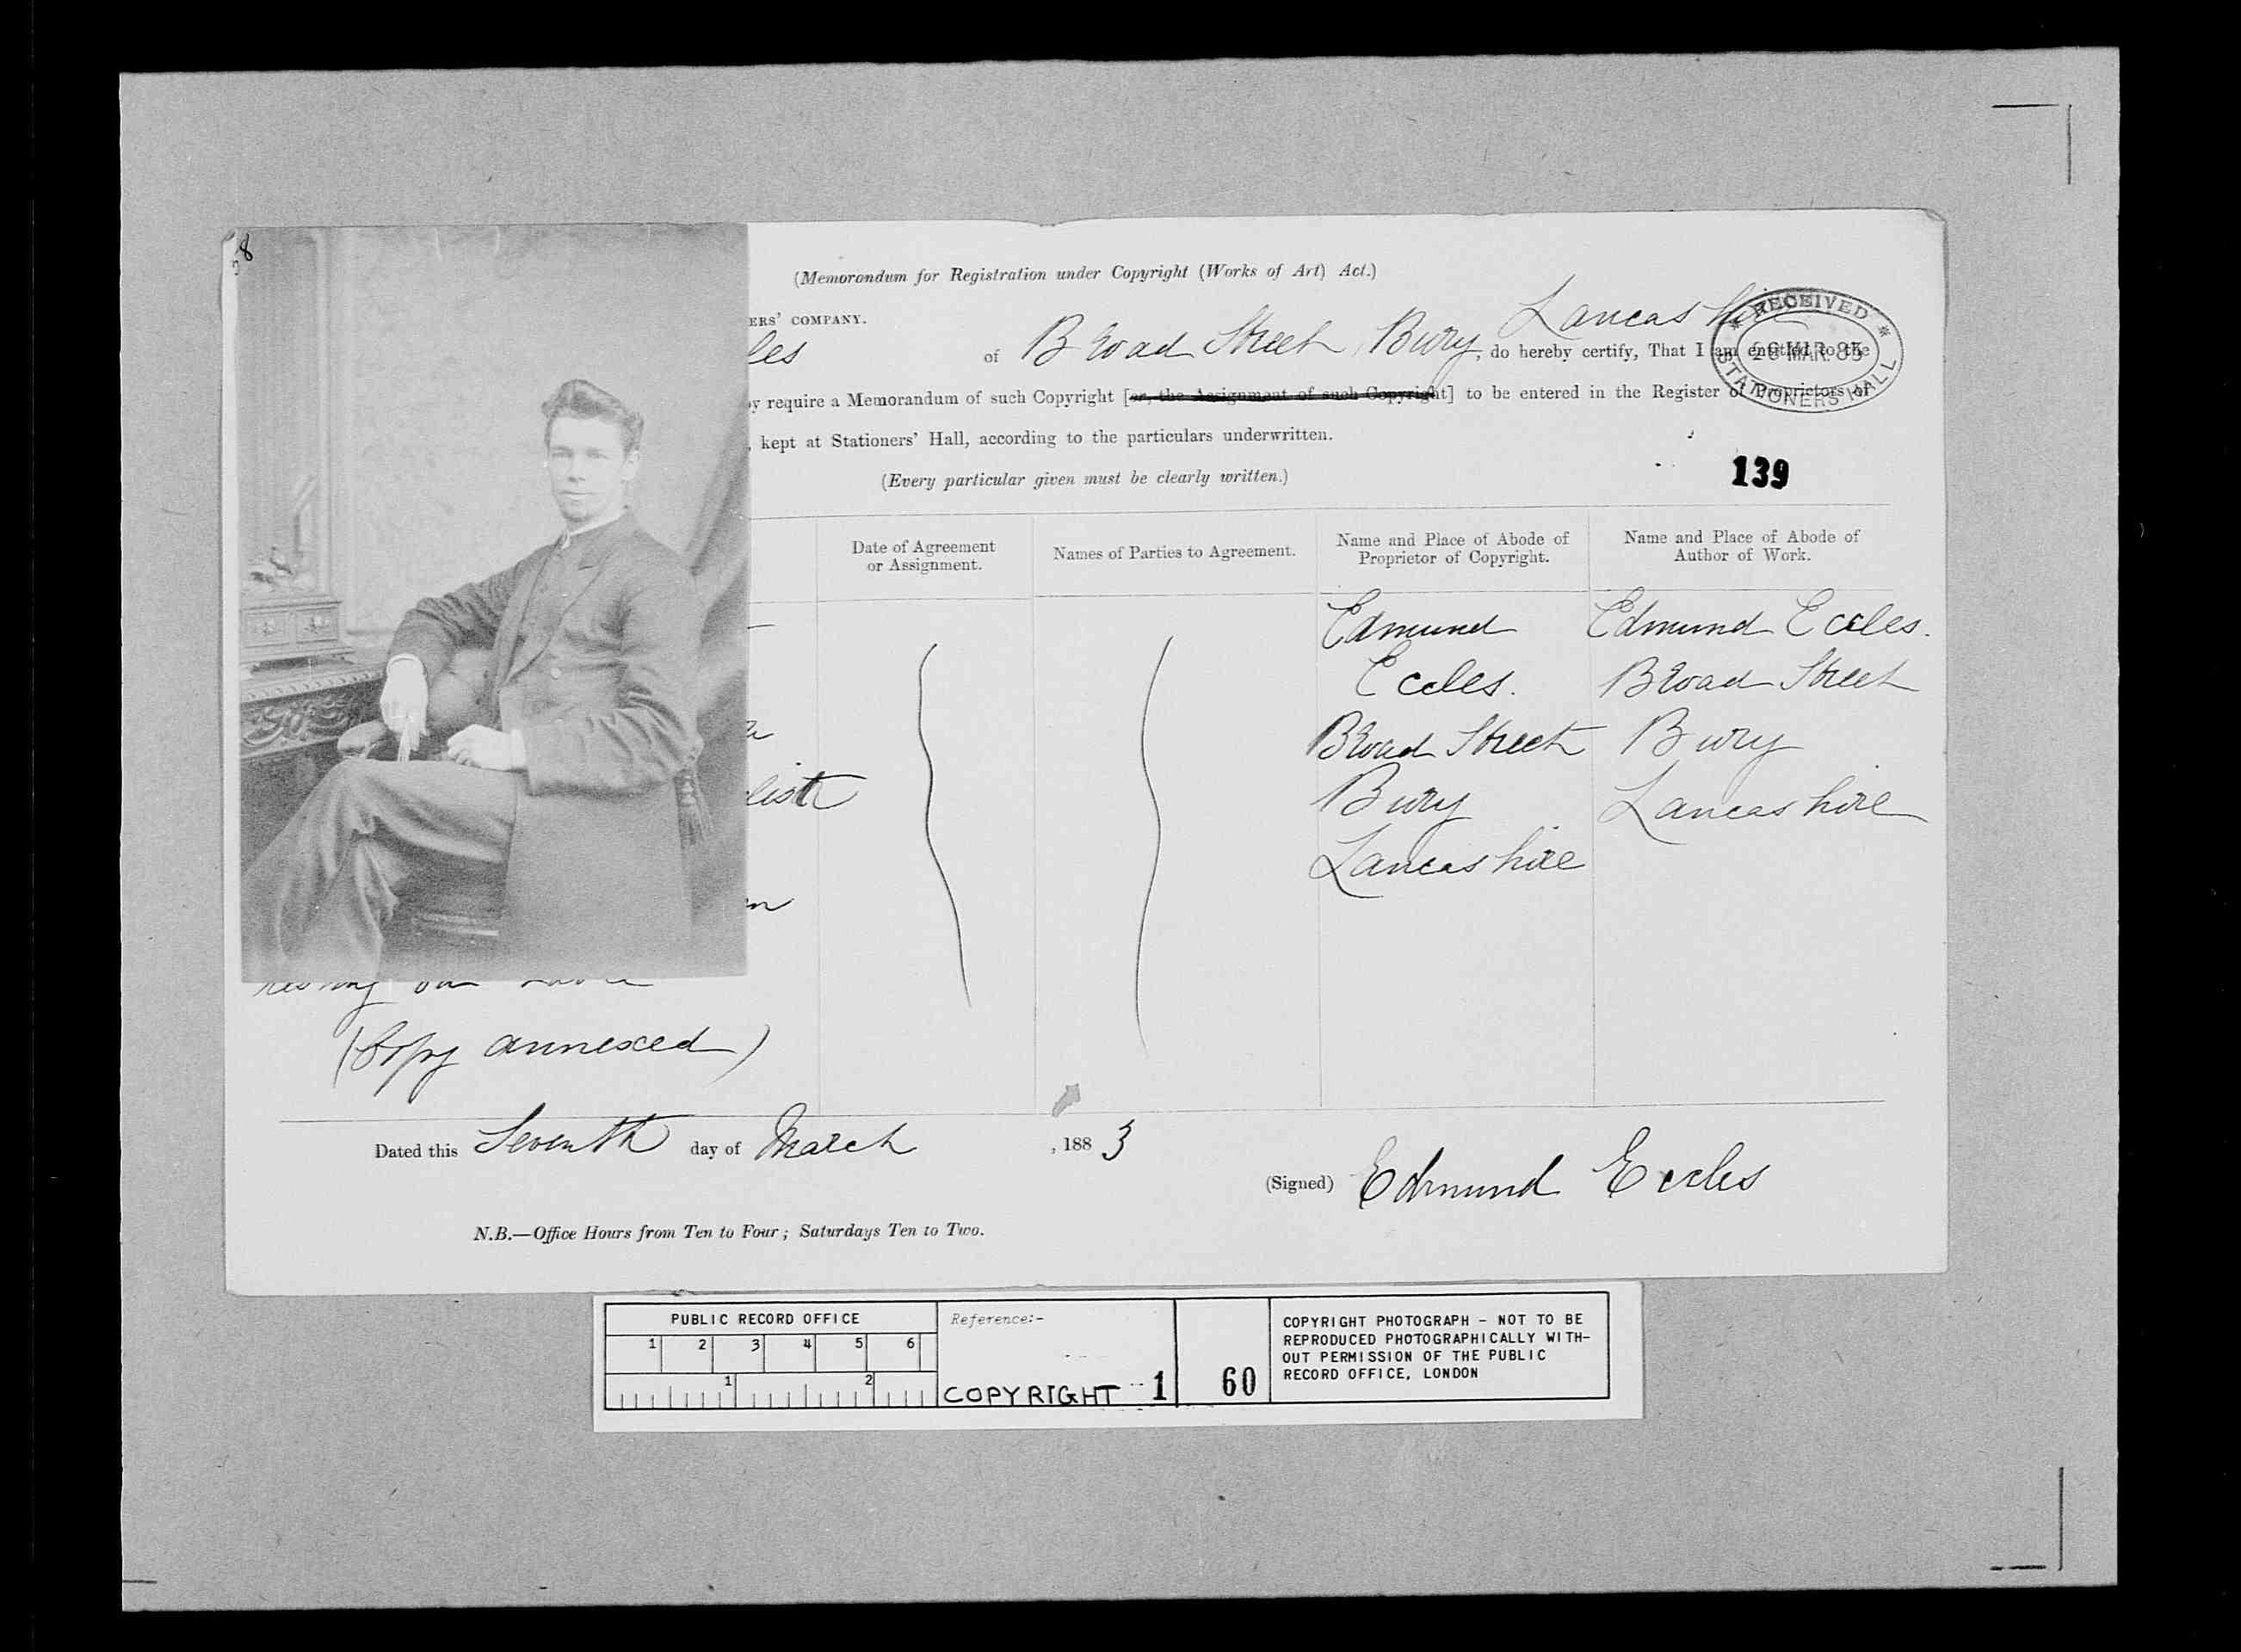 8
(Memorandum for Registration under Copyright (Works of Art) Act.)
ERS' COMPANY.
les of Broad Street, Bury, Lancashire, do hereby certify, That I am entitled to the
by require a Memorandum of such Copyright [or, the Assignment of such Copyright] to be entered in the Register of Proprietors of
, kept at Stationers' Hall, according to the particulars underwritten.
(Every particular given must be clearly written.)
RECEIVED
MAR. 83
STATIONERS HALL
139
Date of Agreement
or Assignment.
Names of Parties to Agreement.
Name and Place of Abode of
Proprietor of Copyright.
Name and Place of Abode of
Author of Work.
Edmund
Eccles.
Broad Street
Bury
Lancashire
Edmund Eccles.
Broad Street
Bury
Lancashire
(Copy annexed)
Dated this Seventh day of March, 1883
(Signed) Edmund Eccles
N.B.—Office Hours from Ten to Four; Saturdays Ten to Two.
PUBLIC RECORD OFFICE
1 2 3 4 5 6
1 2
Reference:-
COPYRIGHT 1
60
COPYRIGHT PHOTOGRAPH - NOT TO BE
REPRODUCED PHOTOGRAPHICALLY WITH-
OUT PERMISSION OF THE PUBLIC
RECORD OFFICE, LONDON